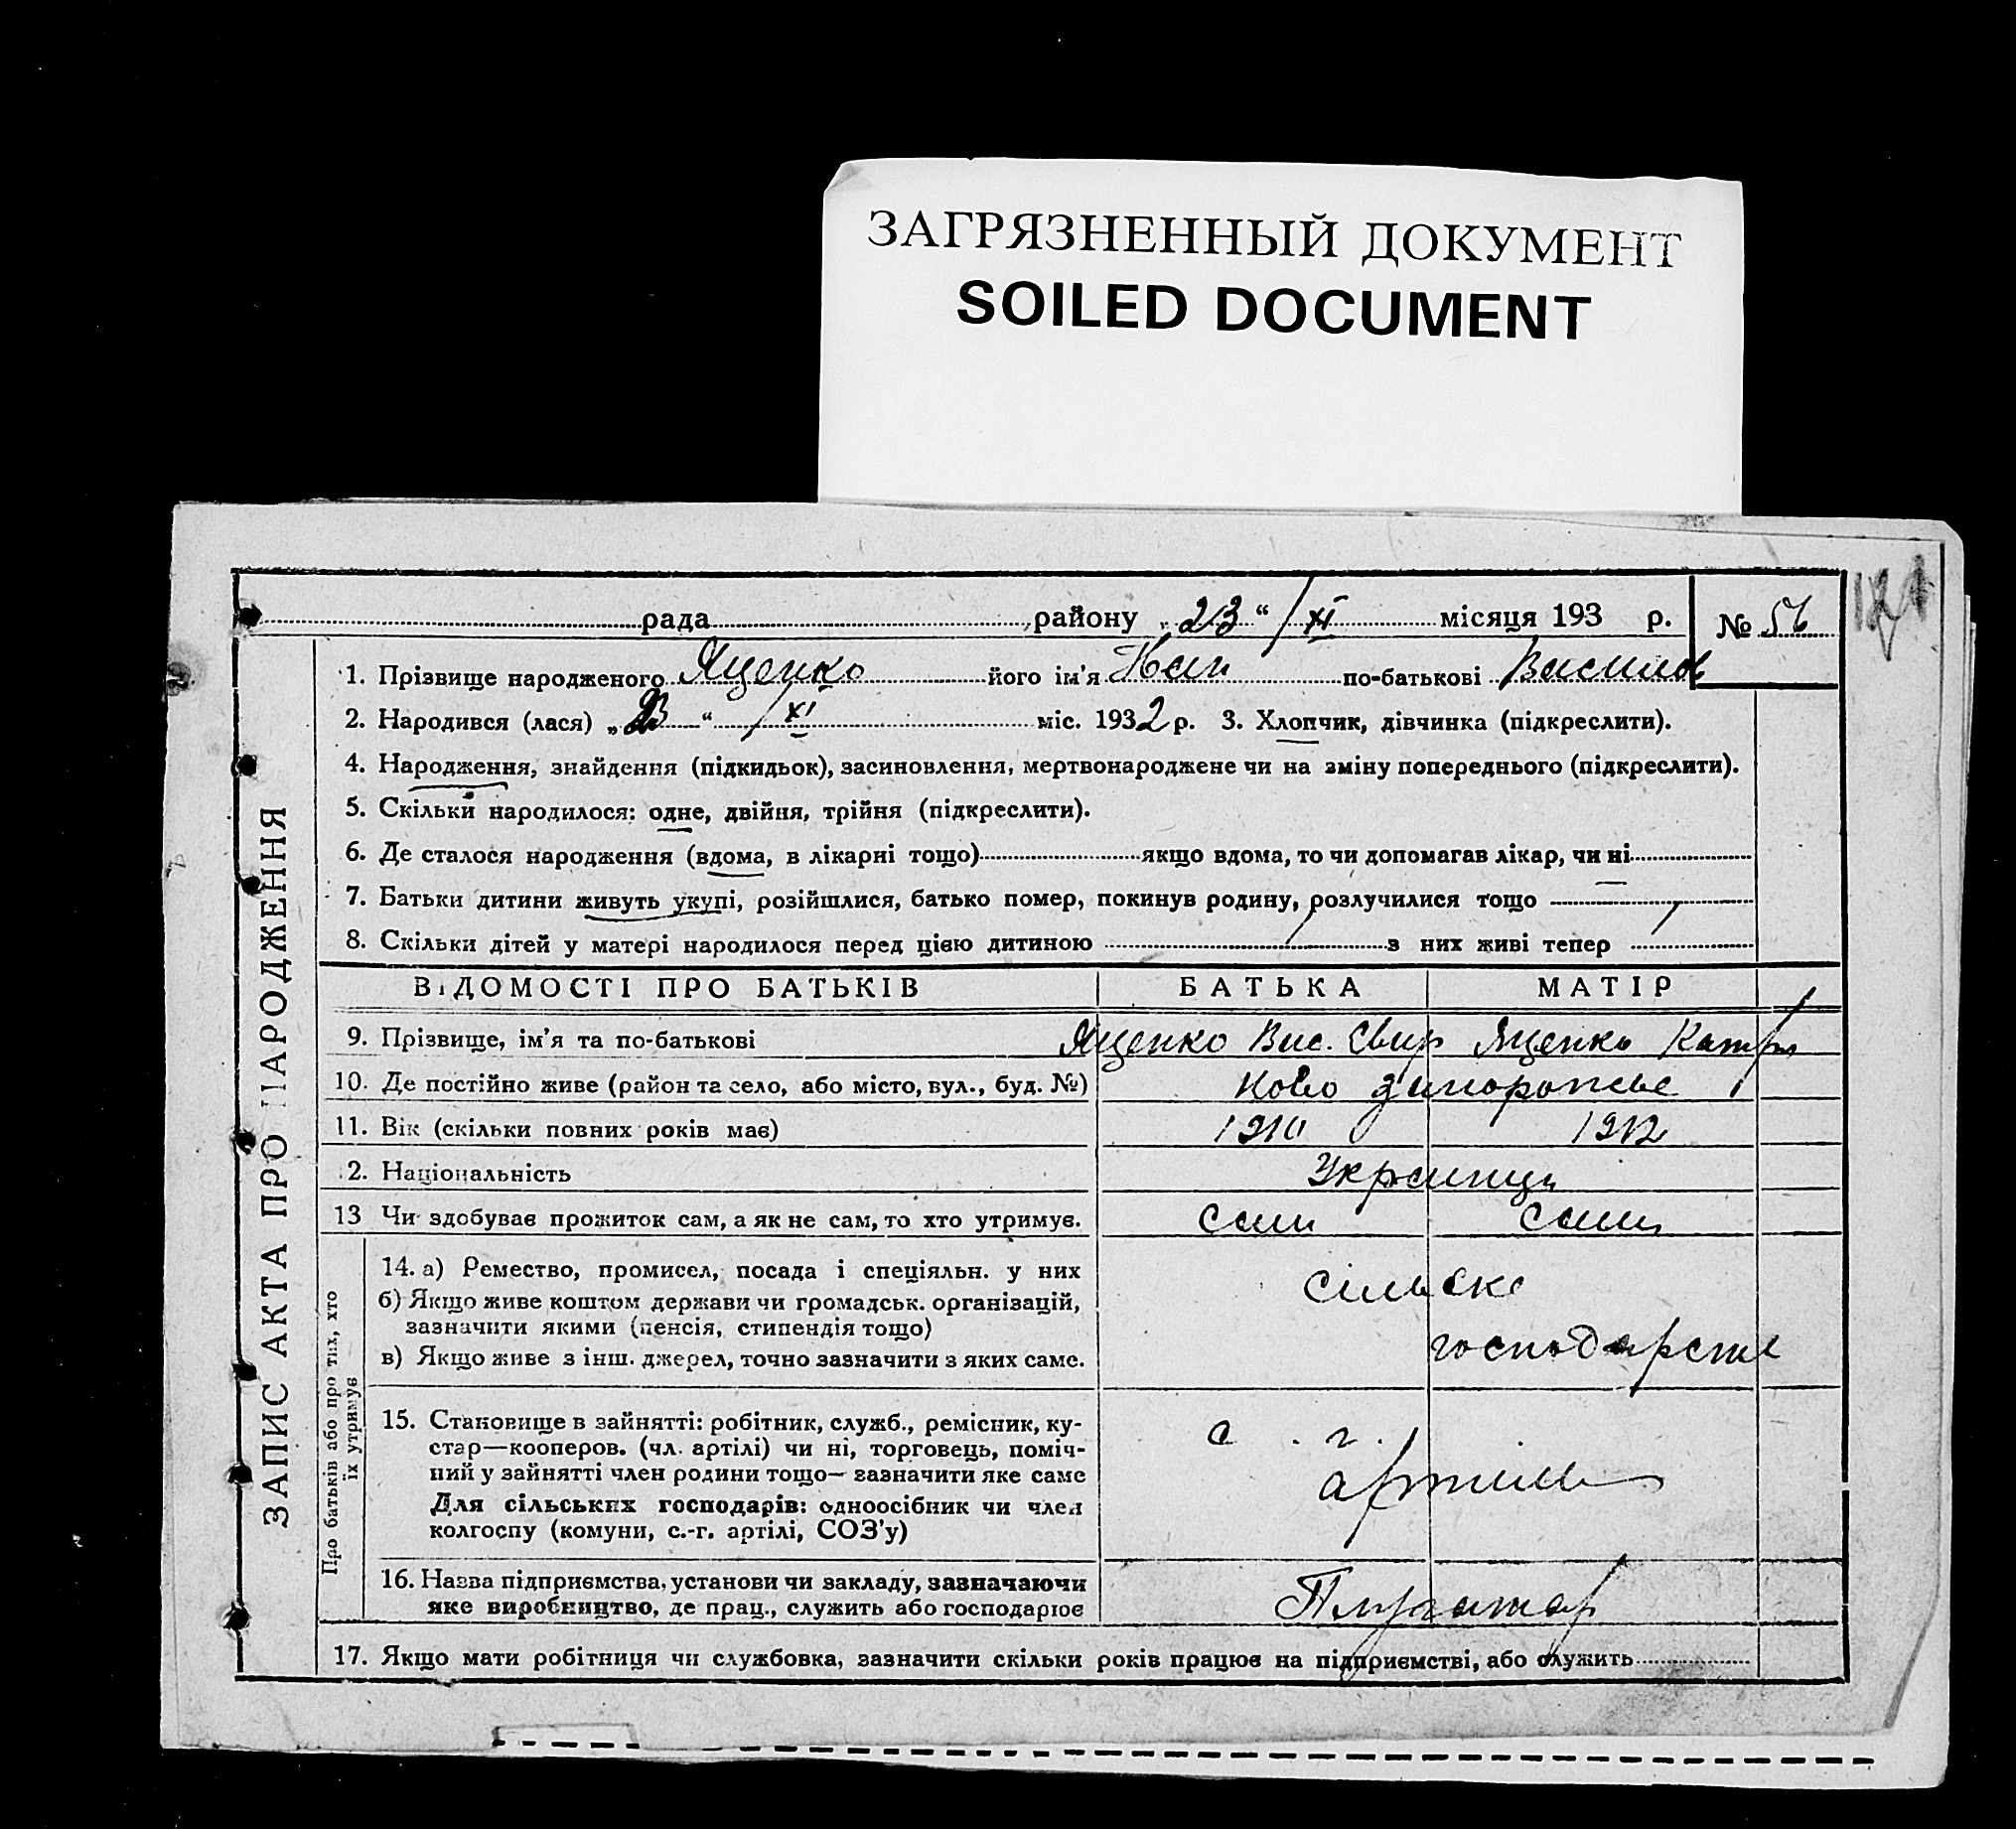 ЗАГРЯЗНЕННЫЙ ДОКУМЕНТ
SOILED DOCUMENT
рада района „23“ / XI місяця 193 р. № 56
1. Прізвище народженого Яценко його ім'я по-батькові Василов
2. Народився (лася) „23“ / XI міс. 1932 р. 3. Хлопчик, дівчинка (підкреслити).
4. Народження, знайдення (підкидьок), засиновлення, мертвонароджене чи на зміну попереднього (підкреслити).
5. Скільки народилося: одне, двійня, трійня (підкреслити).
6. Де сталося народження (вдома, в лікарні тощо) якщо вдома, то чи допомагав лікар, чи ні
7. Батьки дитини живуть укупі, розійшлися, батько помер, покинув родину, розлучилися тощо
8. Скільки дітей у матері народилося перед цією дитиною 1 з них живі тепер 1
ЗАПИС АКТА ПРО НАРОДЖЕННЯ
ВІДОМОСТІ ПРО БАТЬКІВ БАТЬКА МАТІР
9. Прізвище, ім'я та по-батькові Яценко Вас. Свир Яценко Катр
10. Де постійно живе (район та село, або місто, вул., буд. №) Ново запорожье
11. Вік (скільки повних років має) 1910 1912
12. Національність Українци
13 Чи здобуває прожиток сам, а як не сам, то хто утримує. Сами Сами
Про батьків або про тих, хто
їх утримує
14. а) Ремество, промисел, посада і спеціяльн. у них
б) Якщо живе коштом держави чи громадськ. організацій,
зазначити якими (пенсія, стипендія тощо)
в) Якщо живе з інш. джерел, точно зазначити з яких саме.
сільске
господарстве
15. Становище в зайнятті: робітник, служб., ремісник, ку-
стар—кооперов. (чл. артілі) чи ні, торговець, поміч-
ний у зайнятті член родини тощо— зазначити яке саме
Для сільських господарів: одноосібник чи член
колгоспу (комуни, с.-г. артілі, СОЗ'у)
с . г.
артиль
16. Назва підприємства, установи чи закладу, зазначаючи
яке виробництво, де прац., служить або господарює
17. Якщо мати робітниця чи службовка, зазначити скільки років працює на підприємстві, або служить